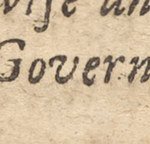 wise an
Govern